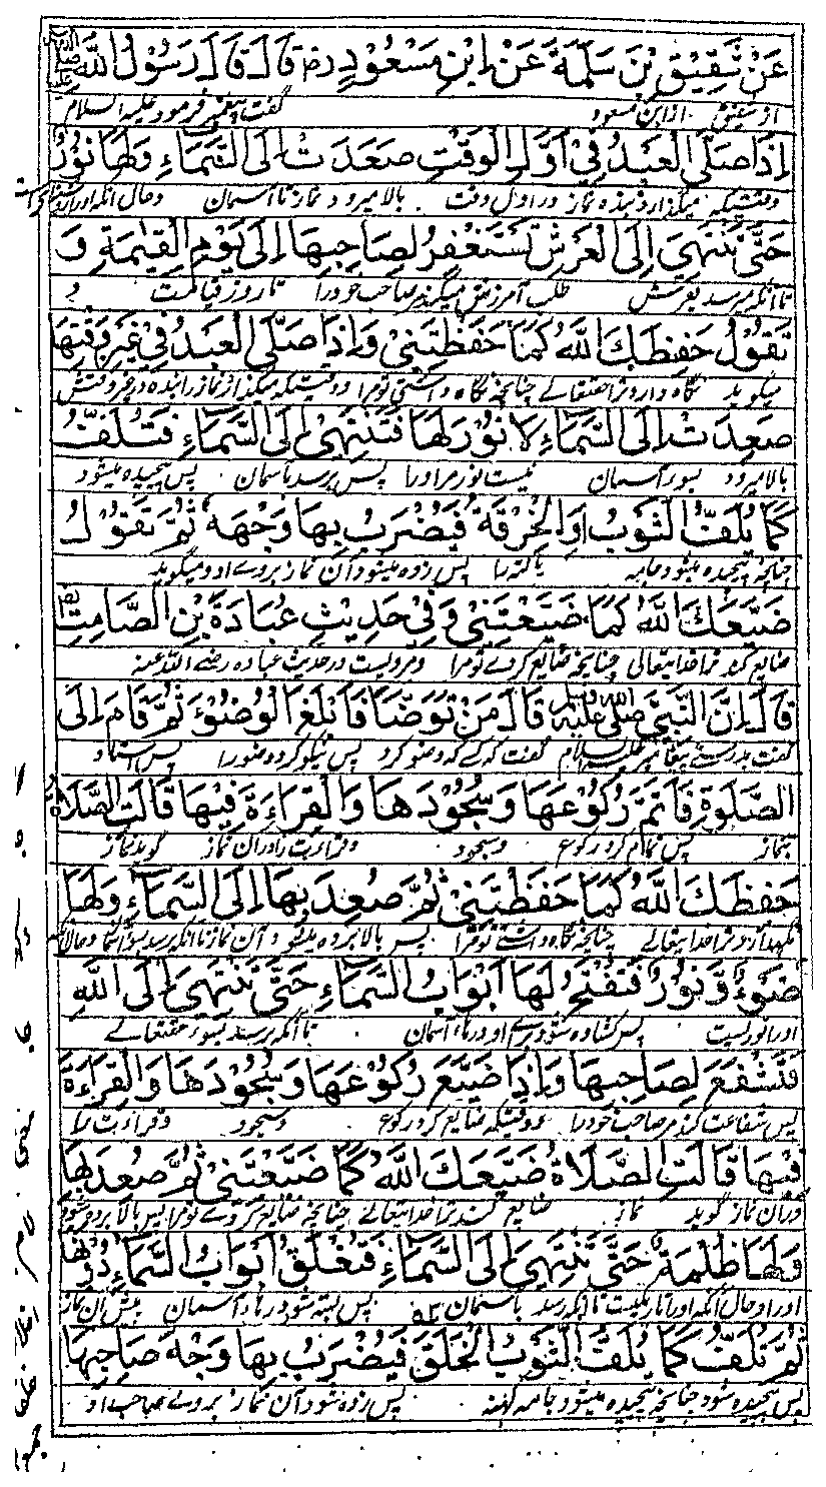 عَنْ شَقِيْقِ بْنِ سَلَمَةَ عَنْ اِبْنِ مَسْعُوْدٍ رض قَالَ قَالَ رَسُوْلُ اللّٰهِ صلى الله عليه
از شقیق از ابن مسعود گفت پیغمبر فرمود علیه السلام
اِذَا صَلَّى الْعَبْدُ فِيْ اَوَّلِ الْوَقْتِ صَعَدَتْ اِلَى السَّمَاءِ وَلَهَا نُوْرٌ
وقتیکه میگذارد بنده نماز در اول وقت بالا میرود نماز تا آسمان وحال آنکه اورا
حَتّٰى تَنْتَهِيَ اِلَى الْعَرْشِ تَسْتَغْفِرُ لِصَاحِبِهَا اِلٰى يَوْمِ الْقِيٰمَةِ وَ
تا آنکه میرسد بعرش طلب آمرزش میکند مر صاحب خودرا تا روز قیامت و
تَقُوْلُ حَفِظَكَ اللّٰهُ كَمَا حَفَظْتَنِيْ وَاِذَا صَلَّى الْعَبْدُ فِيْ غَيْرِ وَقْتِهَا
میگوید نگاه دارد ترا حقتعالی چنانچه نگاه داشتی تو مرا ووقتیکه میگذارد نماز را بنده در غیر وقتش
صَعِدَتْ اِلَى السَّمَاءِ لَا نُوْرَ لَهَا فَتَنْتَهِيْ اِلَى السَّمَاءِ فَتُلَفُّ
بالا میرود بسوی آسمان نیست نور مر اورا پس برسد تا آسمان پس پیچیده میشود
كَمَا يُلَفُّ الثَّوْبُ اَوِ الْخِرْقَةُ فَيُضْرَبُ بِهَا وَجْهَهُ ثُمَّ تَقُوْلُ
چنانچه پیچیده میشود جامه یا کته را پس زده میشود آن نماز بروی او ومیگوید
ضَيَّعَكَ اللّٰهُ كَمَا ضَيَّعْتَنِيْ وَفِيْ حَدِيْثِ عُبَادَةَ بْنِ الصَّامِتِ رض
ضایع کند ترا خدایتعالی چنانچه ضایع کردی تو مرا ومرویست در حدیث عباده رضی الله عنه
قَالَ اِنَّ النَّبِيَّ صلى الله عليه وسلم قَالَ مَنْ تَوَضَّأَ فَاَبْلَغَ الْوُضُوْءَ ثُمَّ قَامَ اِلَى
گفت بدرستی پیغامبر علیه السلام گفت کسی که وضو کرد پس نیکو کرد وضورا پس استاد
الصَّلٰوةِ فَاَتَمَّ رُكُوْعَهَا وَسُجُوْدَهَا وَالْقِرَاءَةَ فِيْهَا قَالَتِ الصَّلَاةُ
بنماز پس تمام کرد رکوع وسجود وقراءت را در آن نماز گوید نماز
حَفِظَكَ اللّٰهُ كَمَا حَفَظْتَنِيْ ثُمَّ صُعِدَ بِهَا اِلَى السَّمَاءِ وَلَهَا
نگهدارد ترا خدایتعالی چنانچه نگاه داشتی تو مرا پس بالا برده میشود آن نماز تا آنکه برسد بسوی آسمان
ضَوْءٌ وَّنُوْرٌ فَتُفْتَحُ لَهَا اَبْوَابُ السَّمَاءِ حَتّٰى تَنْتَهِيَ اِلَى اللّٰهِ
اورا نوریست پس کشاده شود برای او درهای آسمان تا آنکه برسد بسوی حقتعالی
فَتَشْفَعَ لِصَاحِبِهَا وَاِذَا ضَيَّعَ رُكُوْعَهَا وَسُجُوْدَهَا وَالْقِرَاءَةَ
پس شفاعت کند مر صاحب خودرا ووقتیکه ضایع کرد رکوع وسجود وقراءت را
فِيْهَا قَالَتِ الصَّلَاةُ ضَيَّعَكَ اللّٰهُ كَمَا ضَيَّعْتَنِيْ ثُمَّ صُعِدَ بِهَا
در آن نماز گوید نماز ضایع کند ترا خدایتعالی چنانچه ضایع کردی تو مرا پس بالا برده شود
وَلَهَا ظُلْمَةٌ حَتّٰى تَنْتَهِيَ اِلَى السَّمَاءِ فَتُغْلَقُ اَبْوَابُ السَّمَاءِ دُوْنَهَا
اورا وحال آنکه اورا تاریکیست تا آنکه رسد بآسمان پس بسته شود درهای آسمان پیش آن نماز
ثُمَّ تُلَفُّ كَمَا يُلَفُّ الثَّوْبُ الْخَلَقُ فَيُضْرَبُ بِهَا وَجْهُ صَاحِبِهَا
پس پیچیده شود چنانچه پیچیده میشود جامه کهنه پس زده شود آن نماز بروی صاحب او